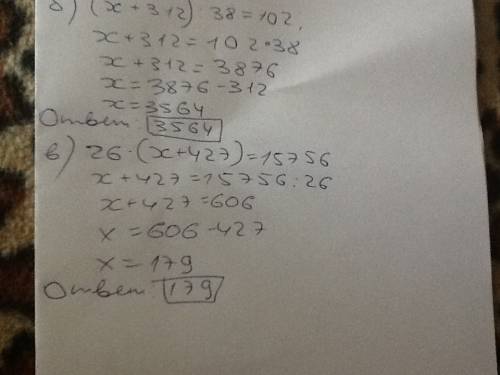 б) (x+312) : 38=102,
x+312=102•38
x+312=3876
x=3876-312
x=3564
Ответ: 3564
в) 26·(x+427)=15756
x+427=15756:26
x+427=606
x=606-427
x=179
Ответ: 179